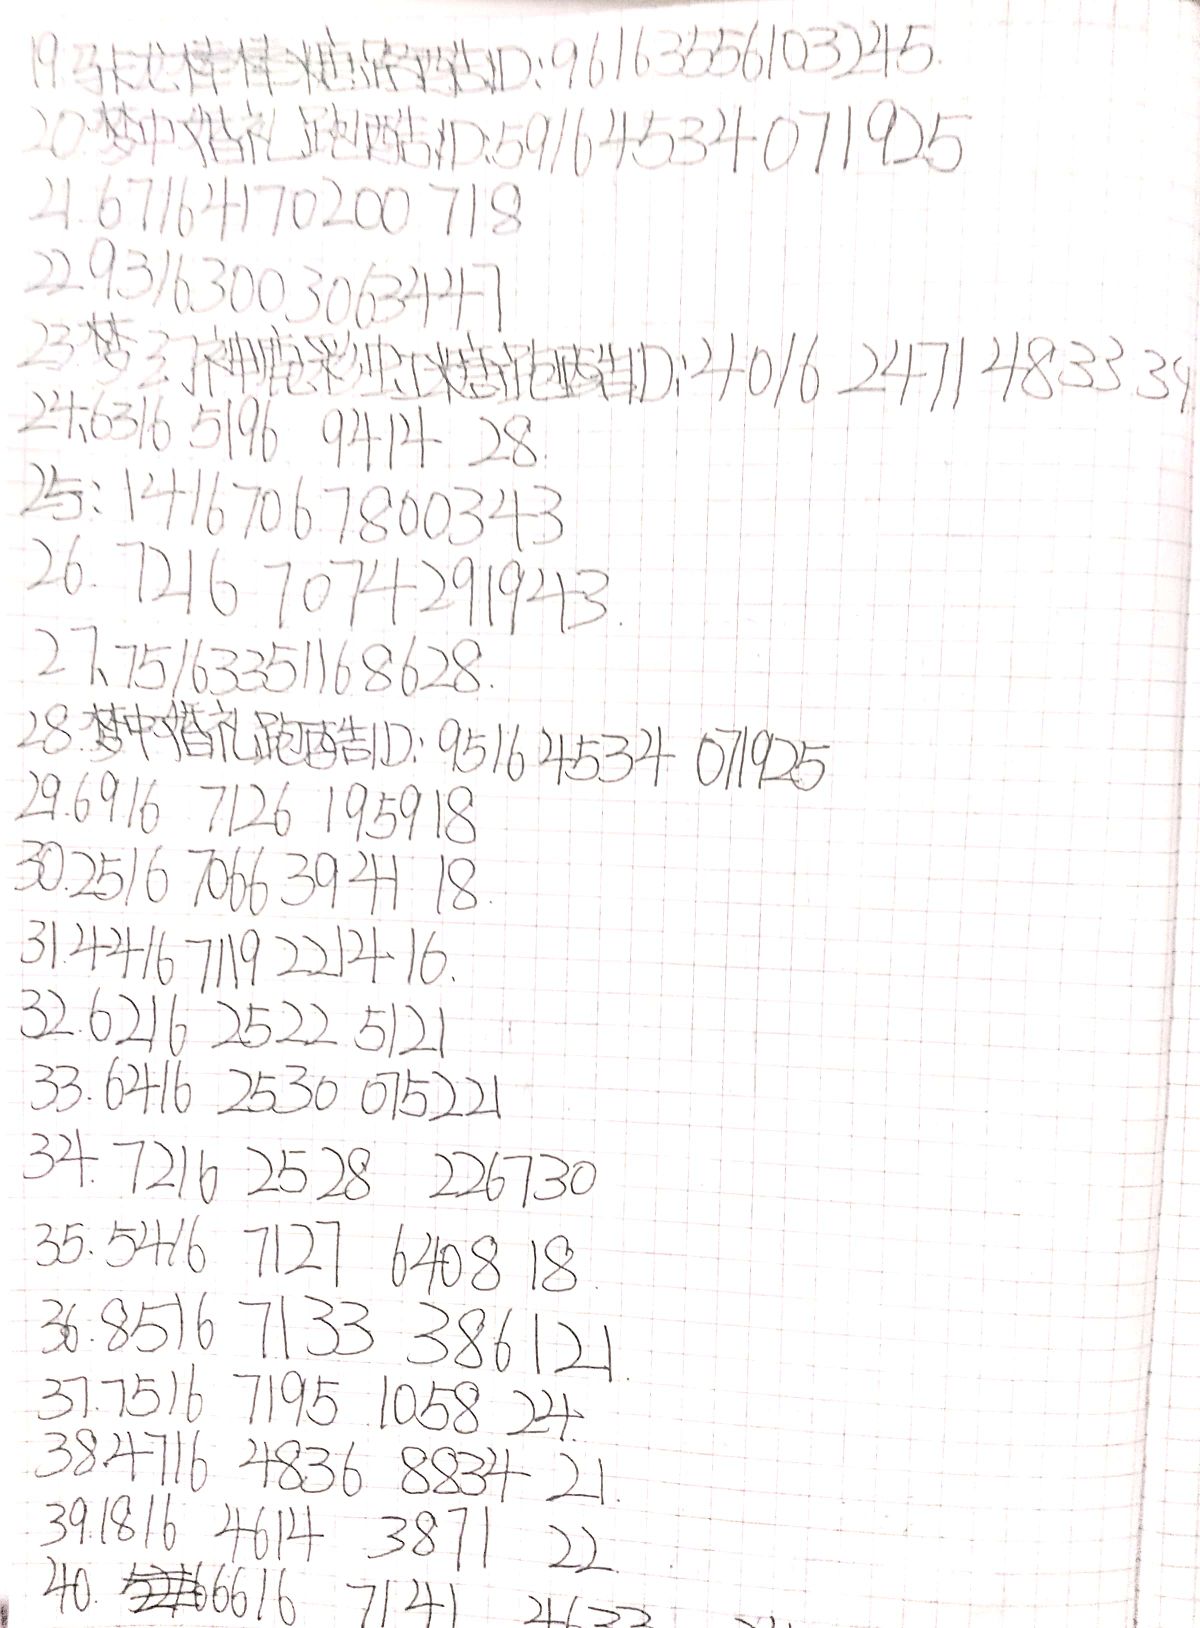 19.马卡龙棒棒糖跑酷ID:96163556103245.
20.梦中婚礼跑酷ID:59164534071925
21.67164170200 718
22.93163003063447
23.梦幻神鹿彩虹糖跑酷ID:4016 2471 4833 39
24.6316 5196 9414 28.
25:14167067800343
26.7216 7074291943.
27.75163351168628.
28.梦中婚礼跑酷ID:95164534 071925
29.6916 7126 195918
30.2516 7066 3941 18.
31.4416 7119 2214 16.
32.6216 2522 5121
33.6416 2530 075221
34.7216 2528 226730
35.5416 7127 6408 18.
36.8516 7133 386121.
37.7516 7195 1058 24.
38.4716 4836 8834 21.
39.1816 4614 3871 22.
40. 6616 7141 4633